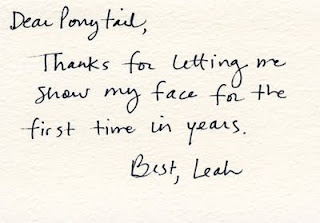 Dear Ponytail,
Thanks for letting me
show my face for the
first time in years.
Best, Leah